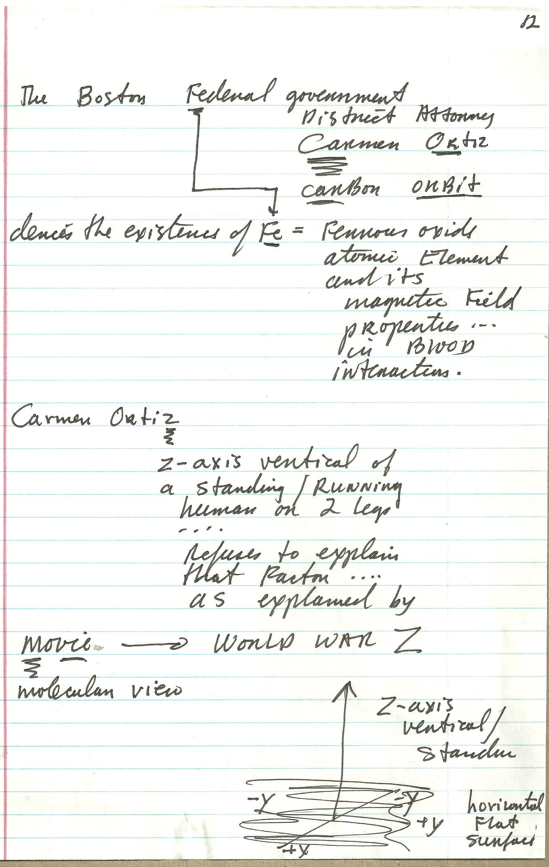 12
The Boston Federal government
District Attorney
Carmen Ortiz
carBon orBit
denies the existence of Fe = Ferrous oxide
atomic Element
and its
magnetic Field
properties ...
in BLOOD
interactions.
Carmen Ortiz
z-axis vertical of
a standing/RUNNING
human on 2 legs
....
Refuses to explain
that Factor ....
as explained by
movie → WORLD WAR Z
molecular view
Z-axis
vertical/
-y -y horizontal
+y Flat
+x surface